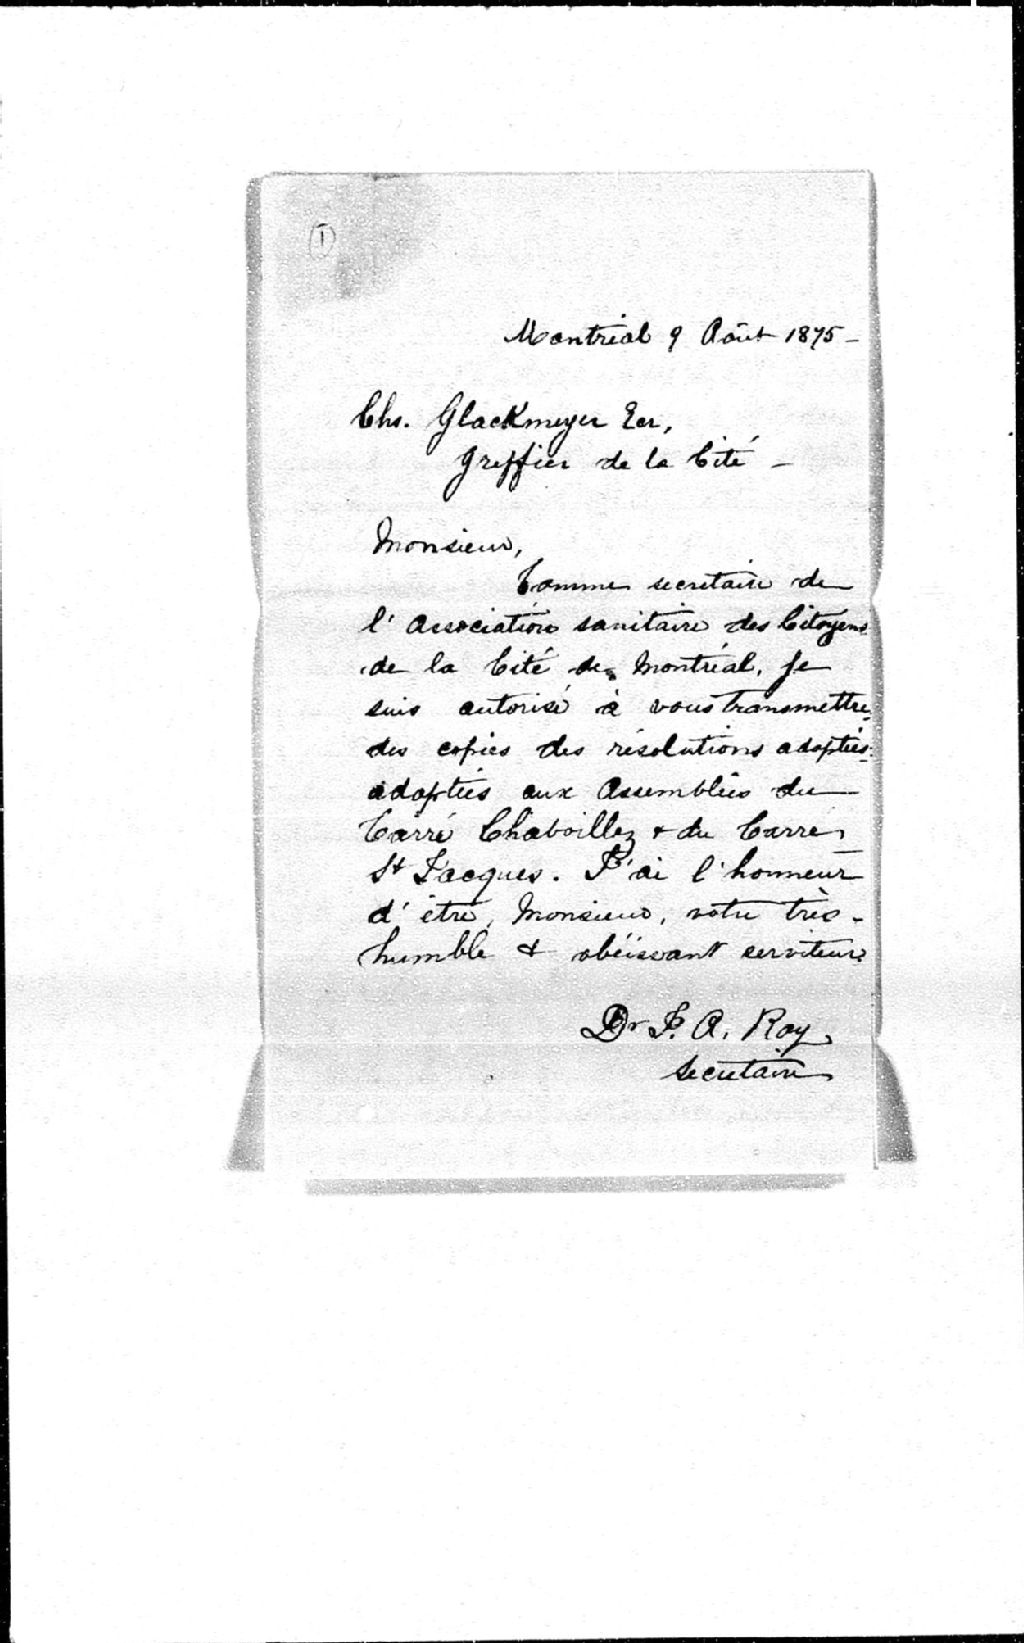 1
Montréal 9 Août 1875 -
Chs. Glackmeyer Ecr,
Greffier de la Cité -
Monsieur,
Comme secretaire de
l'Association sanitaire des Citoyens
de la Cité de Montréal, je
suis autorisé à vous transmettre
des copies des résolutions adoptées
adoptées aux Assemblées du
Carré Chaboillez & du Carré
St Jacques. J'ai l'honneur
d'être, Monsieur, votre très-
humble & obéissant serviteur
Dr J. A. Roy,
Secretaire